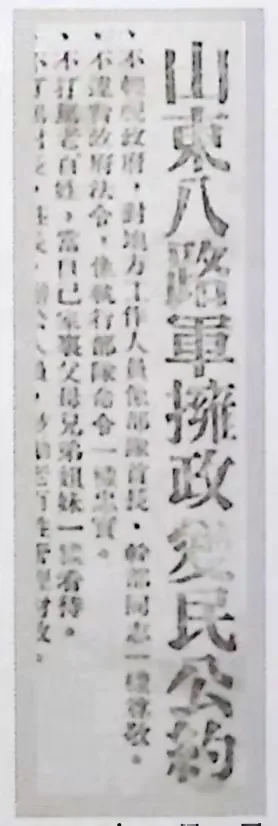 山東八路軍擁政愛民公約
、不輕視政府，對地方工作人員像部隊首長、幹部同志一樣尊敬。
、不違背政府法令，像執行部隊命令一樣忠實。
、不打罵老百姓，當自己家裏父母兄弟姐妹一樣看待。
、不打罵村長、公人員，老百姓